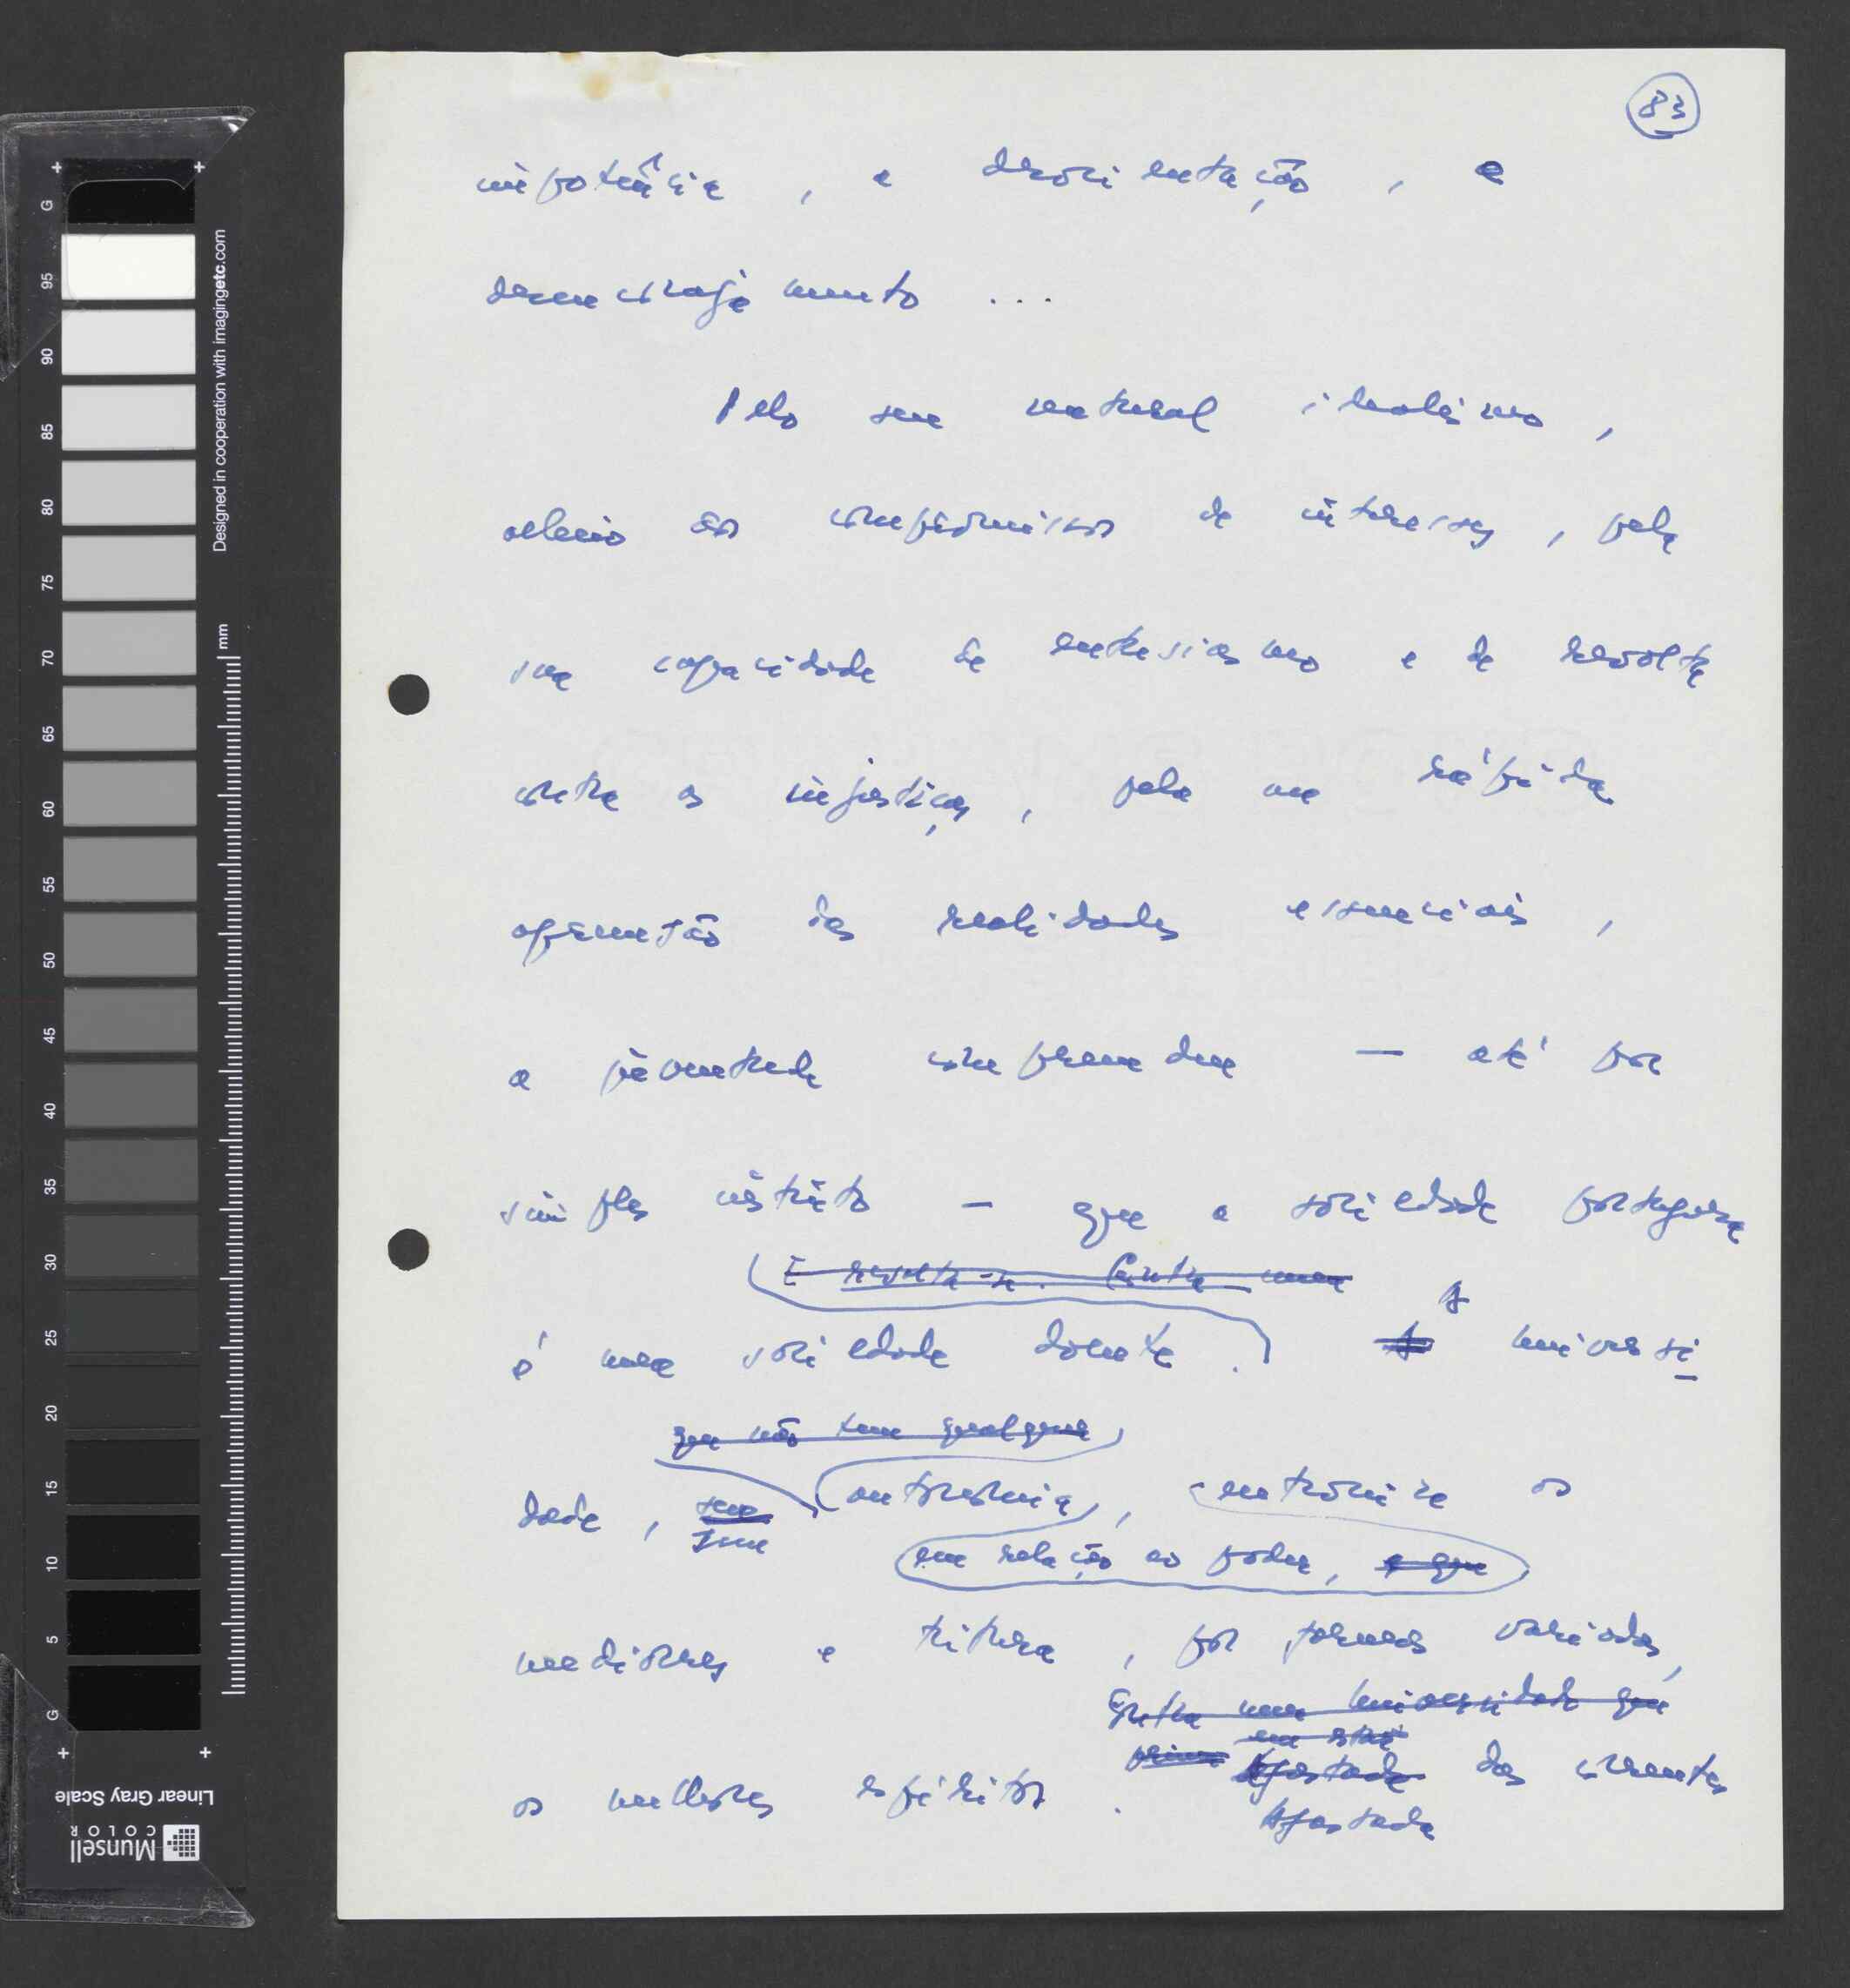 83
impotência, a desorientação, o
desencorajamento ...
Pelo seu natural idealismo,
alheio aos compromissos de interesses, pela
sua capacidade de entusiasmo e de revolta
contra as injustiças, pela sua rápida
apreensão das realidades essenciais,
a juventude compreendeu — até por
simples instinto — que a sociedade portuguesa
E revolta-se. Contra uma
é uma sociedade doente. A A universi
que não tem qualquer
dade, sem sem autonomia, entroniza os
em relação ao poder, e que
medíocres e tritura, por formas variadas,
Contra uma universidade que
em está
os melhores espíritos. afastada das correntes
Afastada
G 95 90 85 80 75 70 65 60 55 50 45 40 35 30 25 20 15 10 5 G
Designed in cooperation with imagingetc.com
mm
Linear Gray Scale
Munsell
COLOR